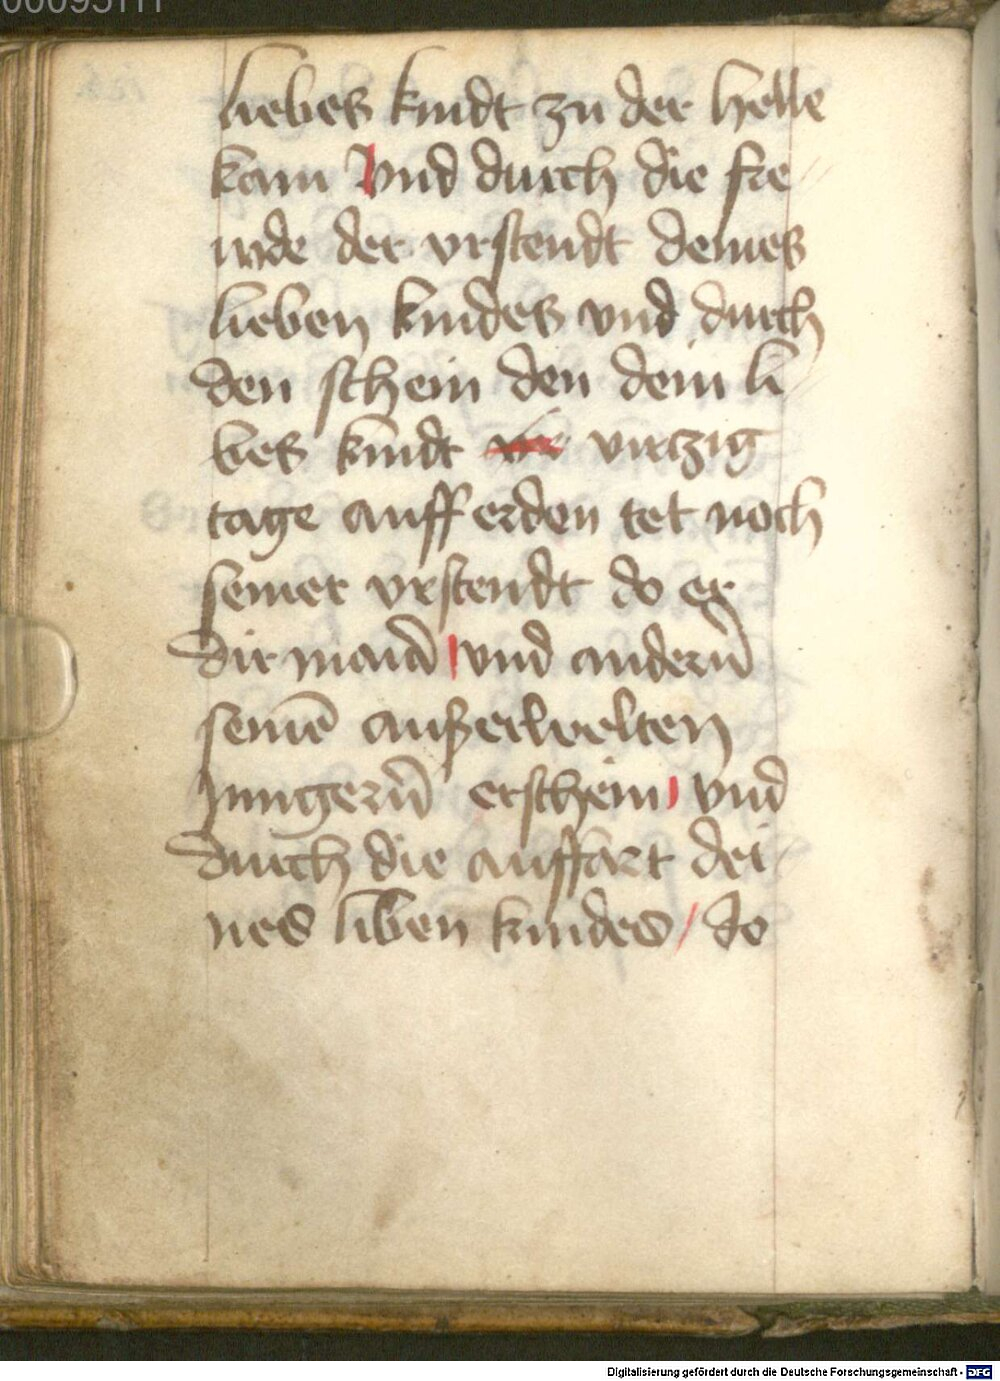 liebes kindt zu der helle
kam Vnd durch die fre
wde der vrstendt deines
lieben kindes vnd durch
den schein den dein li
bes kindt vir virtzig
tage auff erden tet noch
seiner vrstendt do er
dir maid vnd andern̄
seinē außerwelten
Jungern̄ erschein vnd
durch die auffart dei
nes liben kindes / do
Digitalisierung gefördert durch die Deutsche Forschungsgemeinschaft - DFG